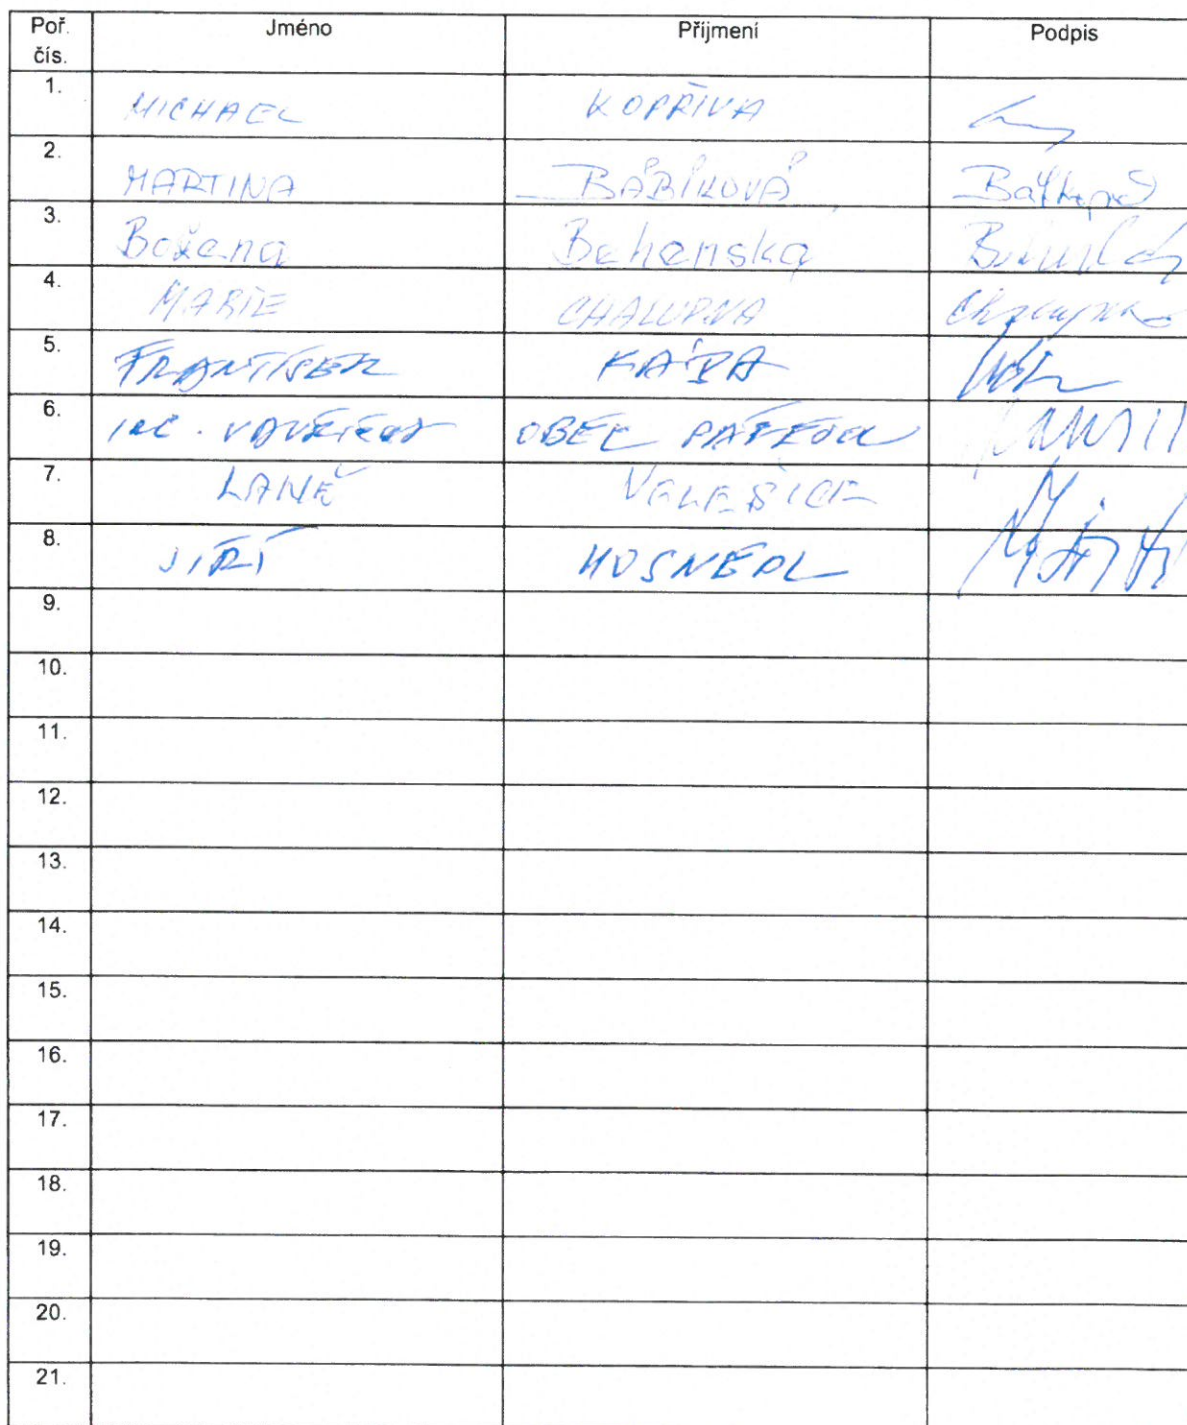 Poř. čís. Jméno Příjmení Podpis
1. MICHAEL KOPŘIVA
2. MARTINA BÁBÍKOVÁ
3. Božena Behenská
4. MARIE CHALUPNÁ
5. FRANTIŠEK KÁBA
6. OBEC
7. LÁNĚ
8. JIŘÍ HOSNÉDL
9.
10.
11.
12.
13.
14.
15.
16.
17.
18.
19.
20.
21.